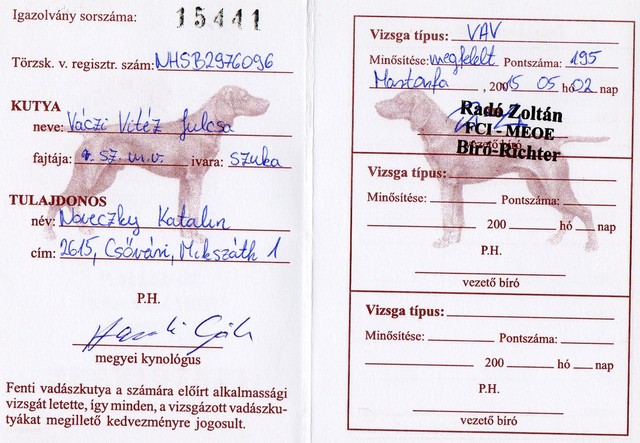 Igazolvány sorszáma: 15441
Törzsk. v. regisztr. szám: NHSB2976096
KUTYA
neve: Váczi Vitéz Julcsa
fajtája: r. sz. m. v. ivara: szuka
TULAJDONOS
név: Noveczky Katalin
cím: 2615, Csővár, Mikszáth 1
P.H.
megyei kynológus
Fenti vadászkutya a számára előírt alkalmassági
vizsgát letette, így minden, a vizsgázott vadászku-
tyákat megillető kedvezményre jogosult.
Vizsga típus: VAV
Minősítése: megfelelt Pontszáma: 195
, 2015 05 hó 02 nap
Radó Zoltán
FCI - MEOE
Bíró-Richter
vezető bíró
Vizsga típus:
Minősítése: Pontszáma:
200 hó nap
P.H.
vezető bíró
Vizsga típus:
Minősítése: Pontszáma:
200 hó nap
P.H.
vezető bíró